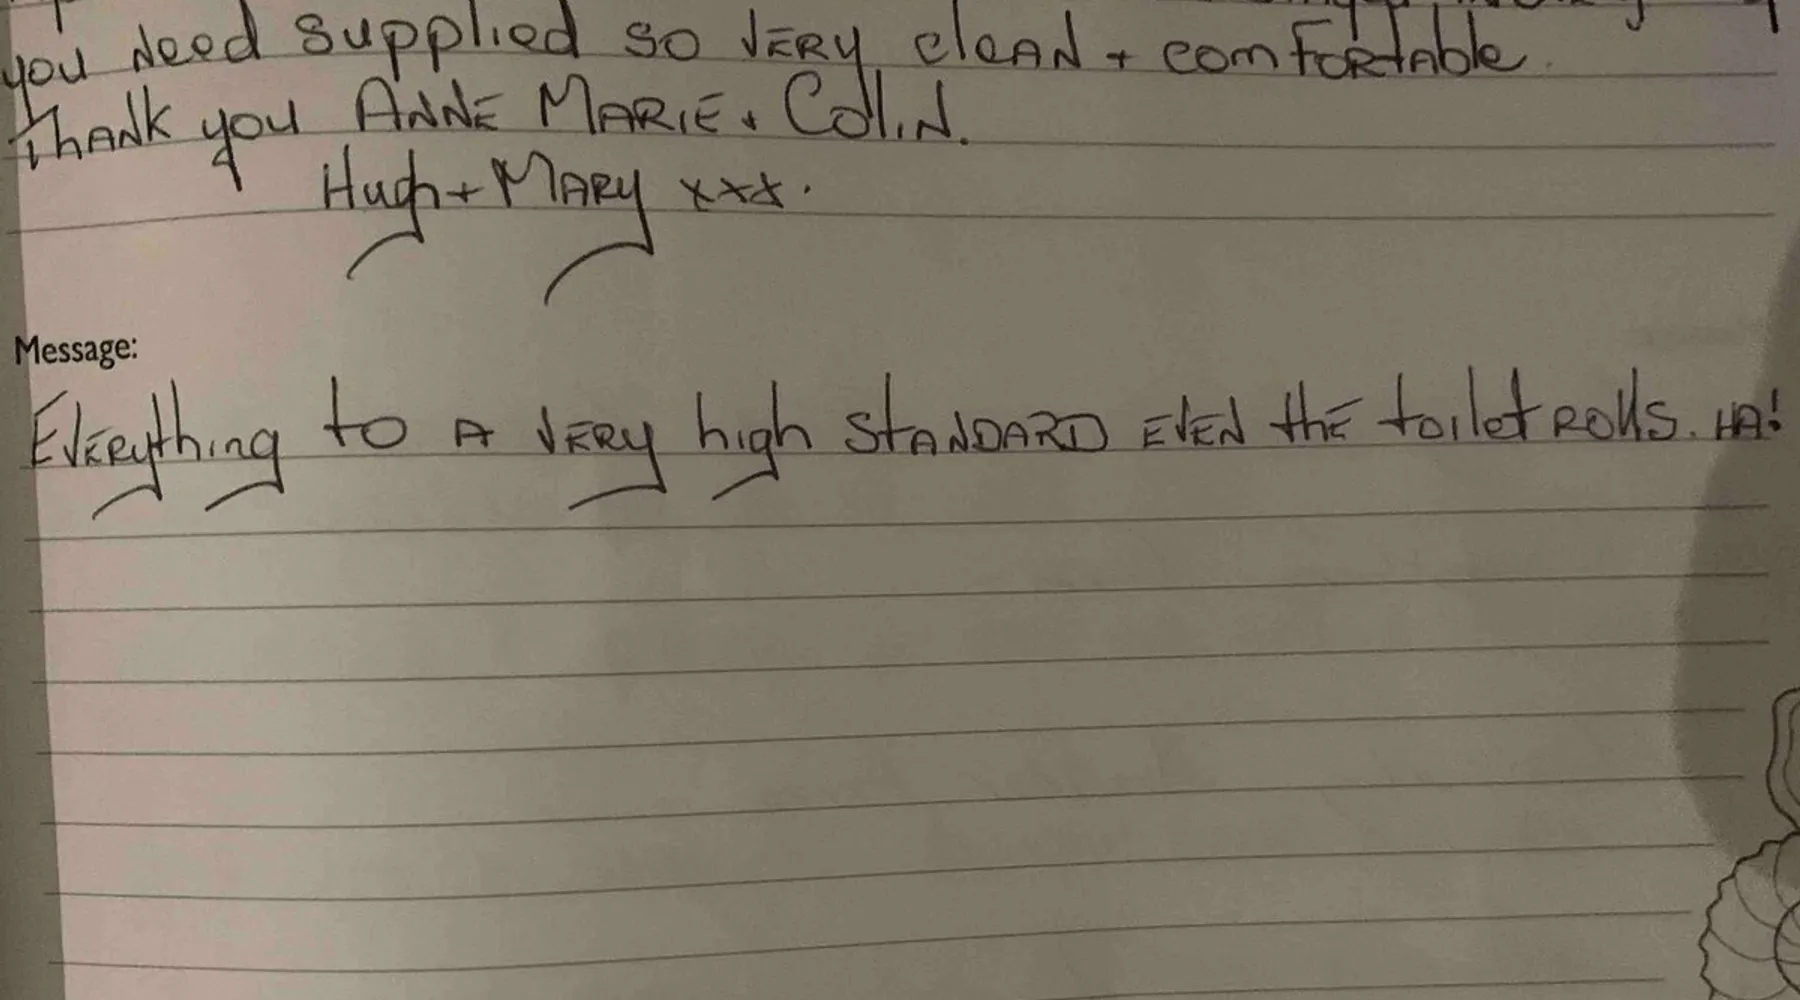 you need supplied so VERY cleAN + comFORtAble.
ThANK you ANNE MARIE + ColiN.
Hugh + MARY xxx.
Message:
EVERything to A VERY high StANDARD EVEN thE toilet ROlls. HA!